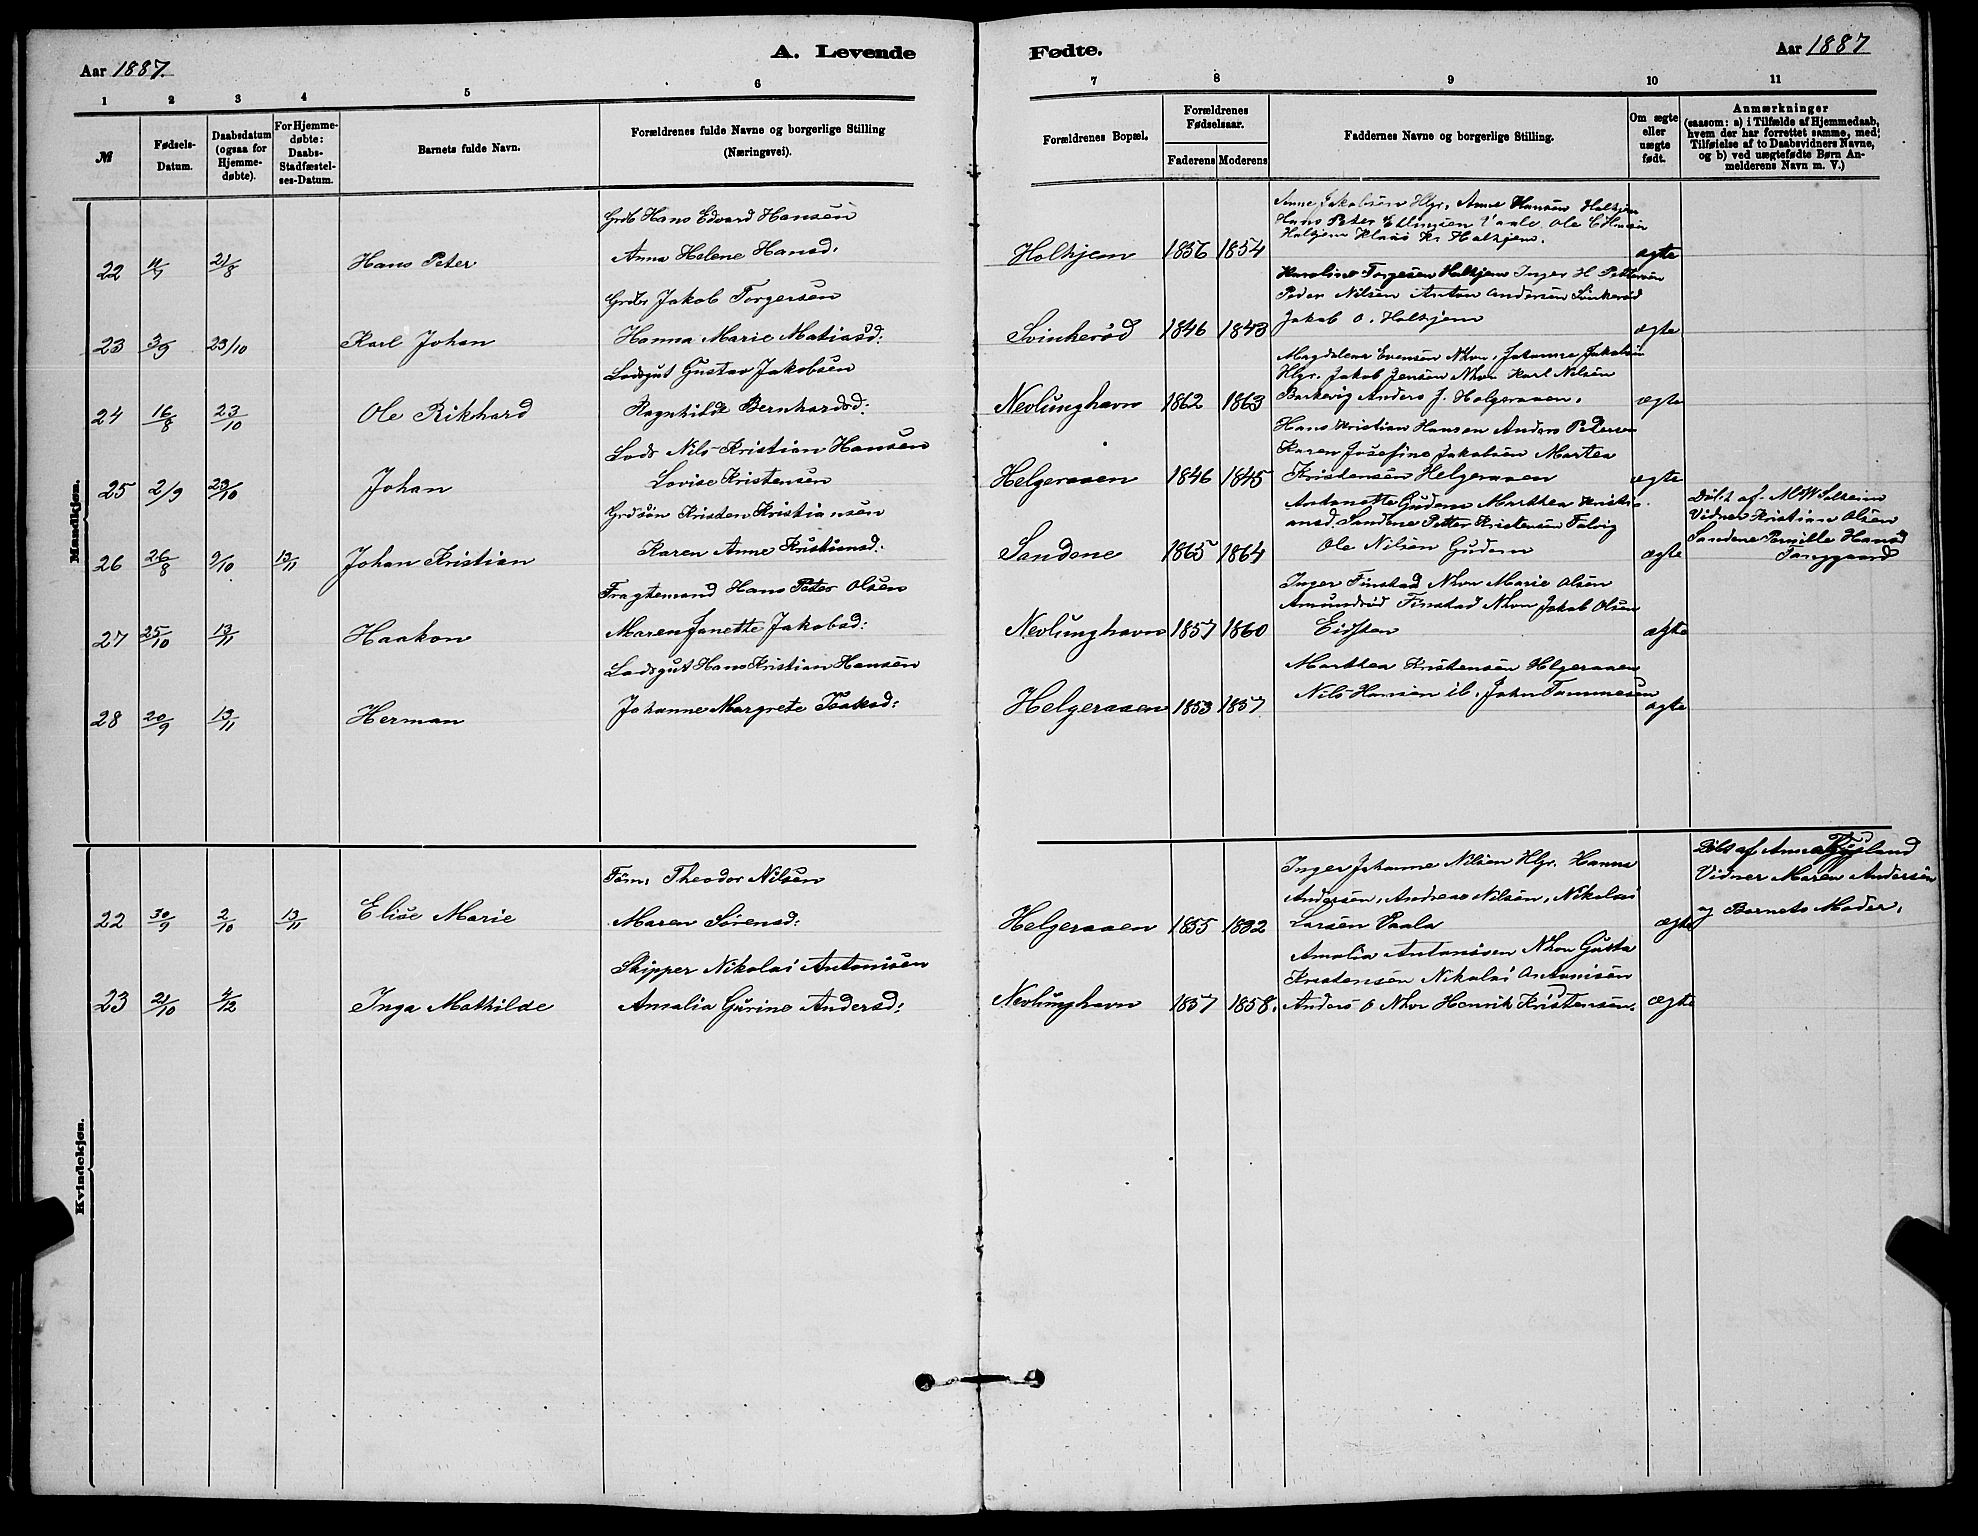 Aar 1887.
A. Levende
1 2 3 4 5 6
№
Fødsels-Datum.
Daabsdatum (ogsaa for Hjemme-døbte).
For Hjemme-døbte: Daabs-Stadfæstel-ses-Datum.
Barnets fulde Navn.
Forældrenes fulde Navne og borgerlige Stilling
(Næringsvei).
Mandkjøn.
Grdb Hans Edvard Hansen
22 11/7 21/8 Hans Peter Anna Helene Hansd:
Grdbr Jakob Torgersen
23 3/9 23/10 Karl Johan Hanna Marie Matiasd:
Lodsgut Gustav Jakobsen
24 16/8 23/10 Ole Rikhard Ragnhilde Bernhardsd:
Lods Nils Kristian Hansen
25 2/9 23/10 Johan Lovise Kristensen
Grdsøn Kristen Kristiansen
26 26/8 9/10 13/11 Johan Kristian Karen Anne Kristiansd:
Fragtemand Hans Peter Olsen
27 25/10 13/11 Haakon Maren Janette Jakobsd:
Lodsgut Hans Kristian Hansen
28 20/9 13/11 Herman Johanne Margrete Isaksd:
Kvindekjøn.
Tøm: Theodor Nilsen
22 30/9 2/10 13/11 Elise Marie Maren Sørensd:
Skipper Nikolai Antonisen
23 21/10 4/12 Inga Mathilde Amalia Gurine Andersd:
Fødte.
Aar 1887
7 8 9 10 11
Forældrenes Bopæl.
Forældrenes Fødselsaar.
Faderens Moderens
Faddernes Navne og borgerlige Stilling.
Om ægte eller uægte født.
Anmærkninger
(saasom: a) i Tilfælde af Hjemmedaab,
hvem der har forrettet samme, med
Tilføielse af to Daabsvidners Navne,
og b) ved uægtefødte Børn An-
melderens Navn m. V.)
Anne Jakobsen Hlgr, Anne Hansen Holtjem
Hans Peter Ellingsen Vaale Ole
Holtjem Klaus Kr Holtjem.
Holtjem 1856 1854 ægte
Karoline Torgesen Holtjem Inger H Pettersen
Peder Nilsen Anton Andersen Svinkerød
Jakob O. Holtjem
Svinkerød 1846 1843 ægte
Magdalene Evensen Nhvn, Johanne Jakobsen
Hlgr. Jakob Jensen Nhvn Karl Nilsen
Nevlunghavn 1862 1863 Barkevig Anders J. Helgeraaen. ægte
Hans Kristian Hansen Anders Petersen
Karen Josefine Jakobsen Martea
Helgeraaen 1846 1845 Kristensen Helgeraaen ægte
Antonette Gudem Marthea Kristi-
ansd. Sandene Petter Kristensen
Sandene 1865 1864 Ole Nilsen Gudem ægte
Døbt af M W
Vidner Kristian Olsen
Sandene Pernille Hansd
Inger Finstad Nhvn Marie Olsen
Amundrød Finstad Nhvn Jakob Olsen
Nevlunghavn 1857 1860 Eidsten ægte
Marthea Kristensen Helgeraaen
Nils Hansen ib. John Tommesen
Helgeraaen 1853 1857 ægte
Inger Johanne Nilsen Hlgr. Hanna
Andersen, Andreas Nilsen, Nikolai
Helgeraaen 1855 1852 Larsen Vaale ægte
Døbt af Anna
Vidner Maren Andersen
og Barnets Moder.
Amalia Antonisen Nhvn Gusta
Kristensen Nikolai Antonisen
Nevlunghavn 1857 1858. Anders O Nhvn Henrik Kristensen. ægte